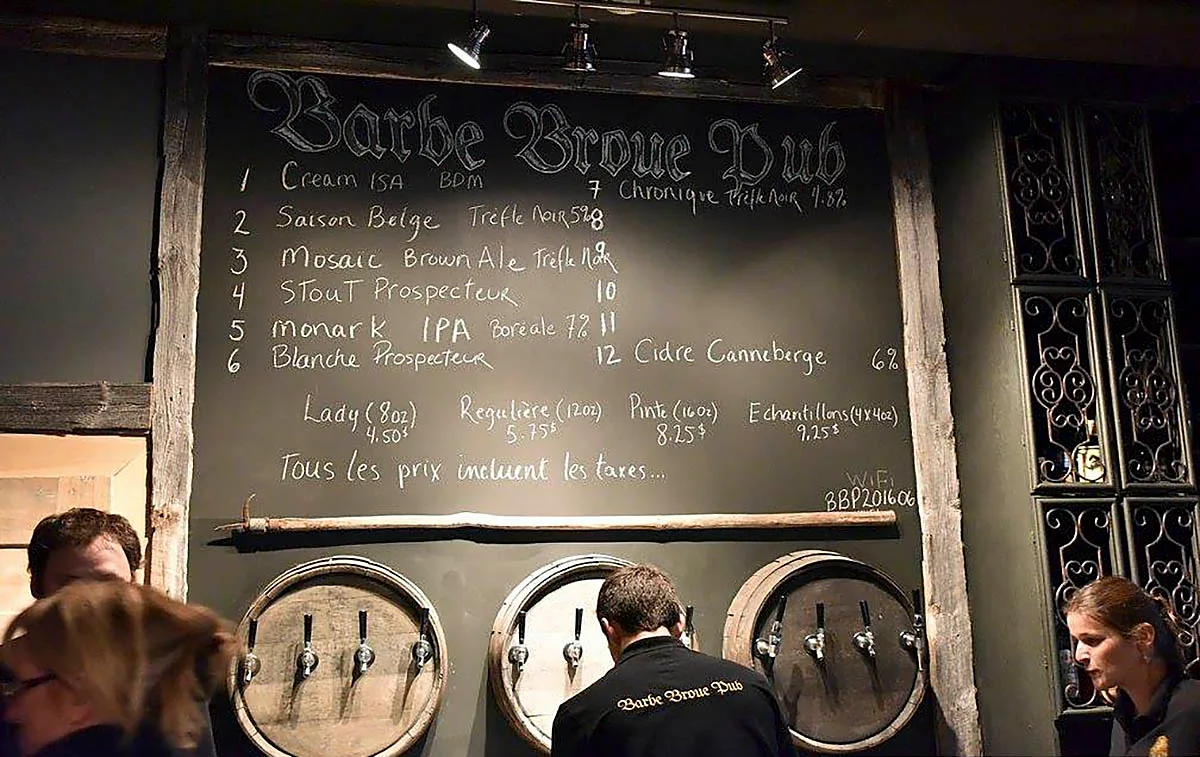 Barbe Broue Pub
1 Cream ISA BDM
2 Saison Belge Trèfle Noir 5%
3 Mosaic Brown Ale Trèfle Noir
4 Stout Prospecteur
5 Monark IPA Boréale 7%
6 Blanche Prospecteur
7 Chronique Trèfle Noir 4.8%
8
9
10
11
12 Cidre Canneberge 6%
Lady (8oz) Regulière (12oz) Pinte (16oz) Echantillons (4x4oz)
4.50$ 5.75$ 8.25$ 9.25$
Tous les prix incluent les taxes...
WiFi
BBP201606
Barbe Broue Pub